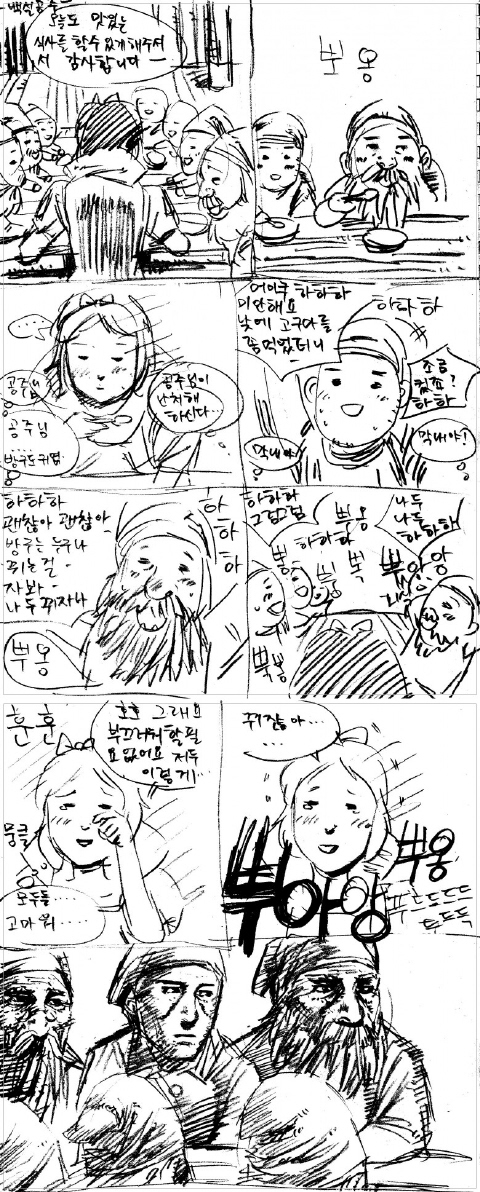 백설공주
오늘도 맛있는
식사를 할수있게해주셔
서 감사합니다 —
뽀옹
...
공주님
공주님
방구도귀엽
공주님이
난처해
하신다...
어이쿠 하하하
미안해요
낮에 고구마를
좀먹었더니
하하하
조금
컸죠?
하하
막내야
막내야!
하하하
괜찮아 괜찮아
방구는 누구나
뀌는걸
자봐-
나두 뀌자나
뿌옹
하
하
하
하하하
그럼그럼
뿌옹
하하하
뿡
뿡
뽁
나두
나두
하하하
뿌아앙
뿍뽕
훈훈
호호 그래요
부끄러워할필
요없어요 저두
이렇게...
뭉클
모두들
고마워....
뀌잖아...
...
뿌아앙
뿌옹
푸드드드드
드드득